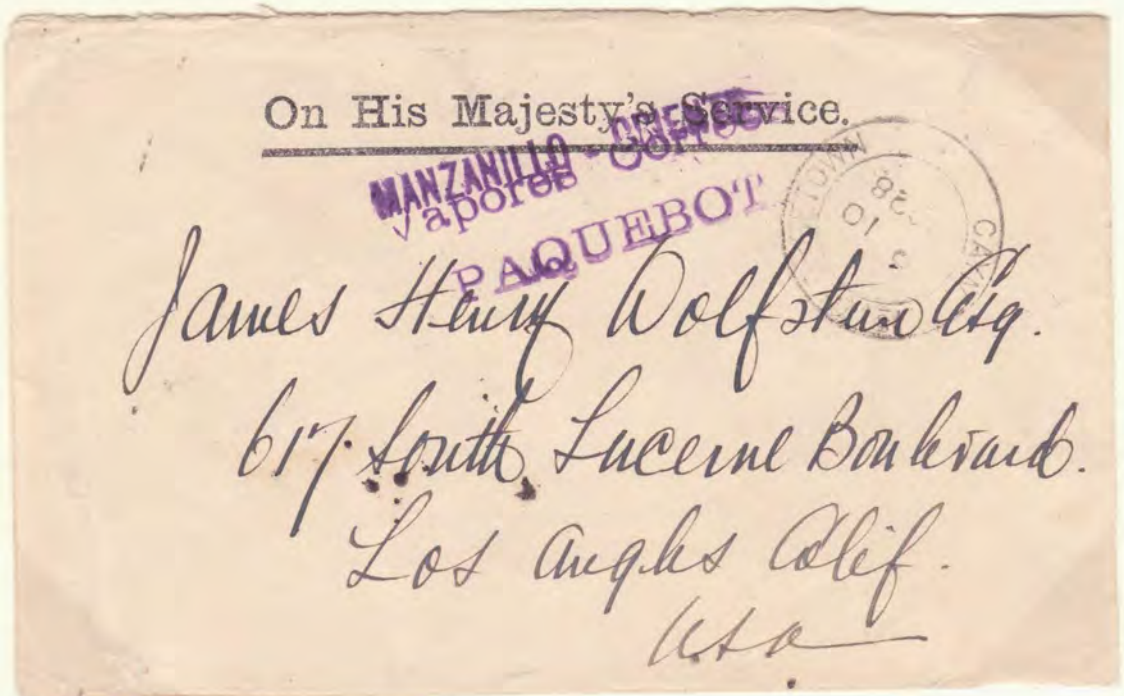 On His Majesty's Service.
MANZANILLO - ORIENTE
Vapores Correos
PAQUEBOT
GEORGETOWN CAYMAN
28
10
James Henry Wolfstun Esq.
617 South Lucerne Boulevard.
Los Angles Calif.
USA